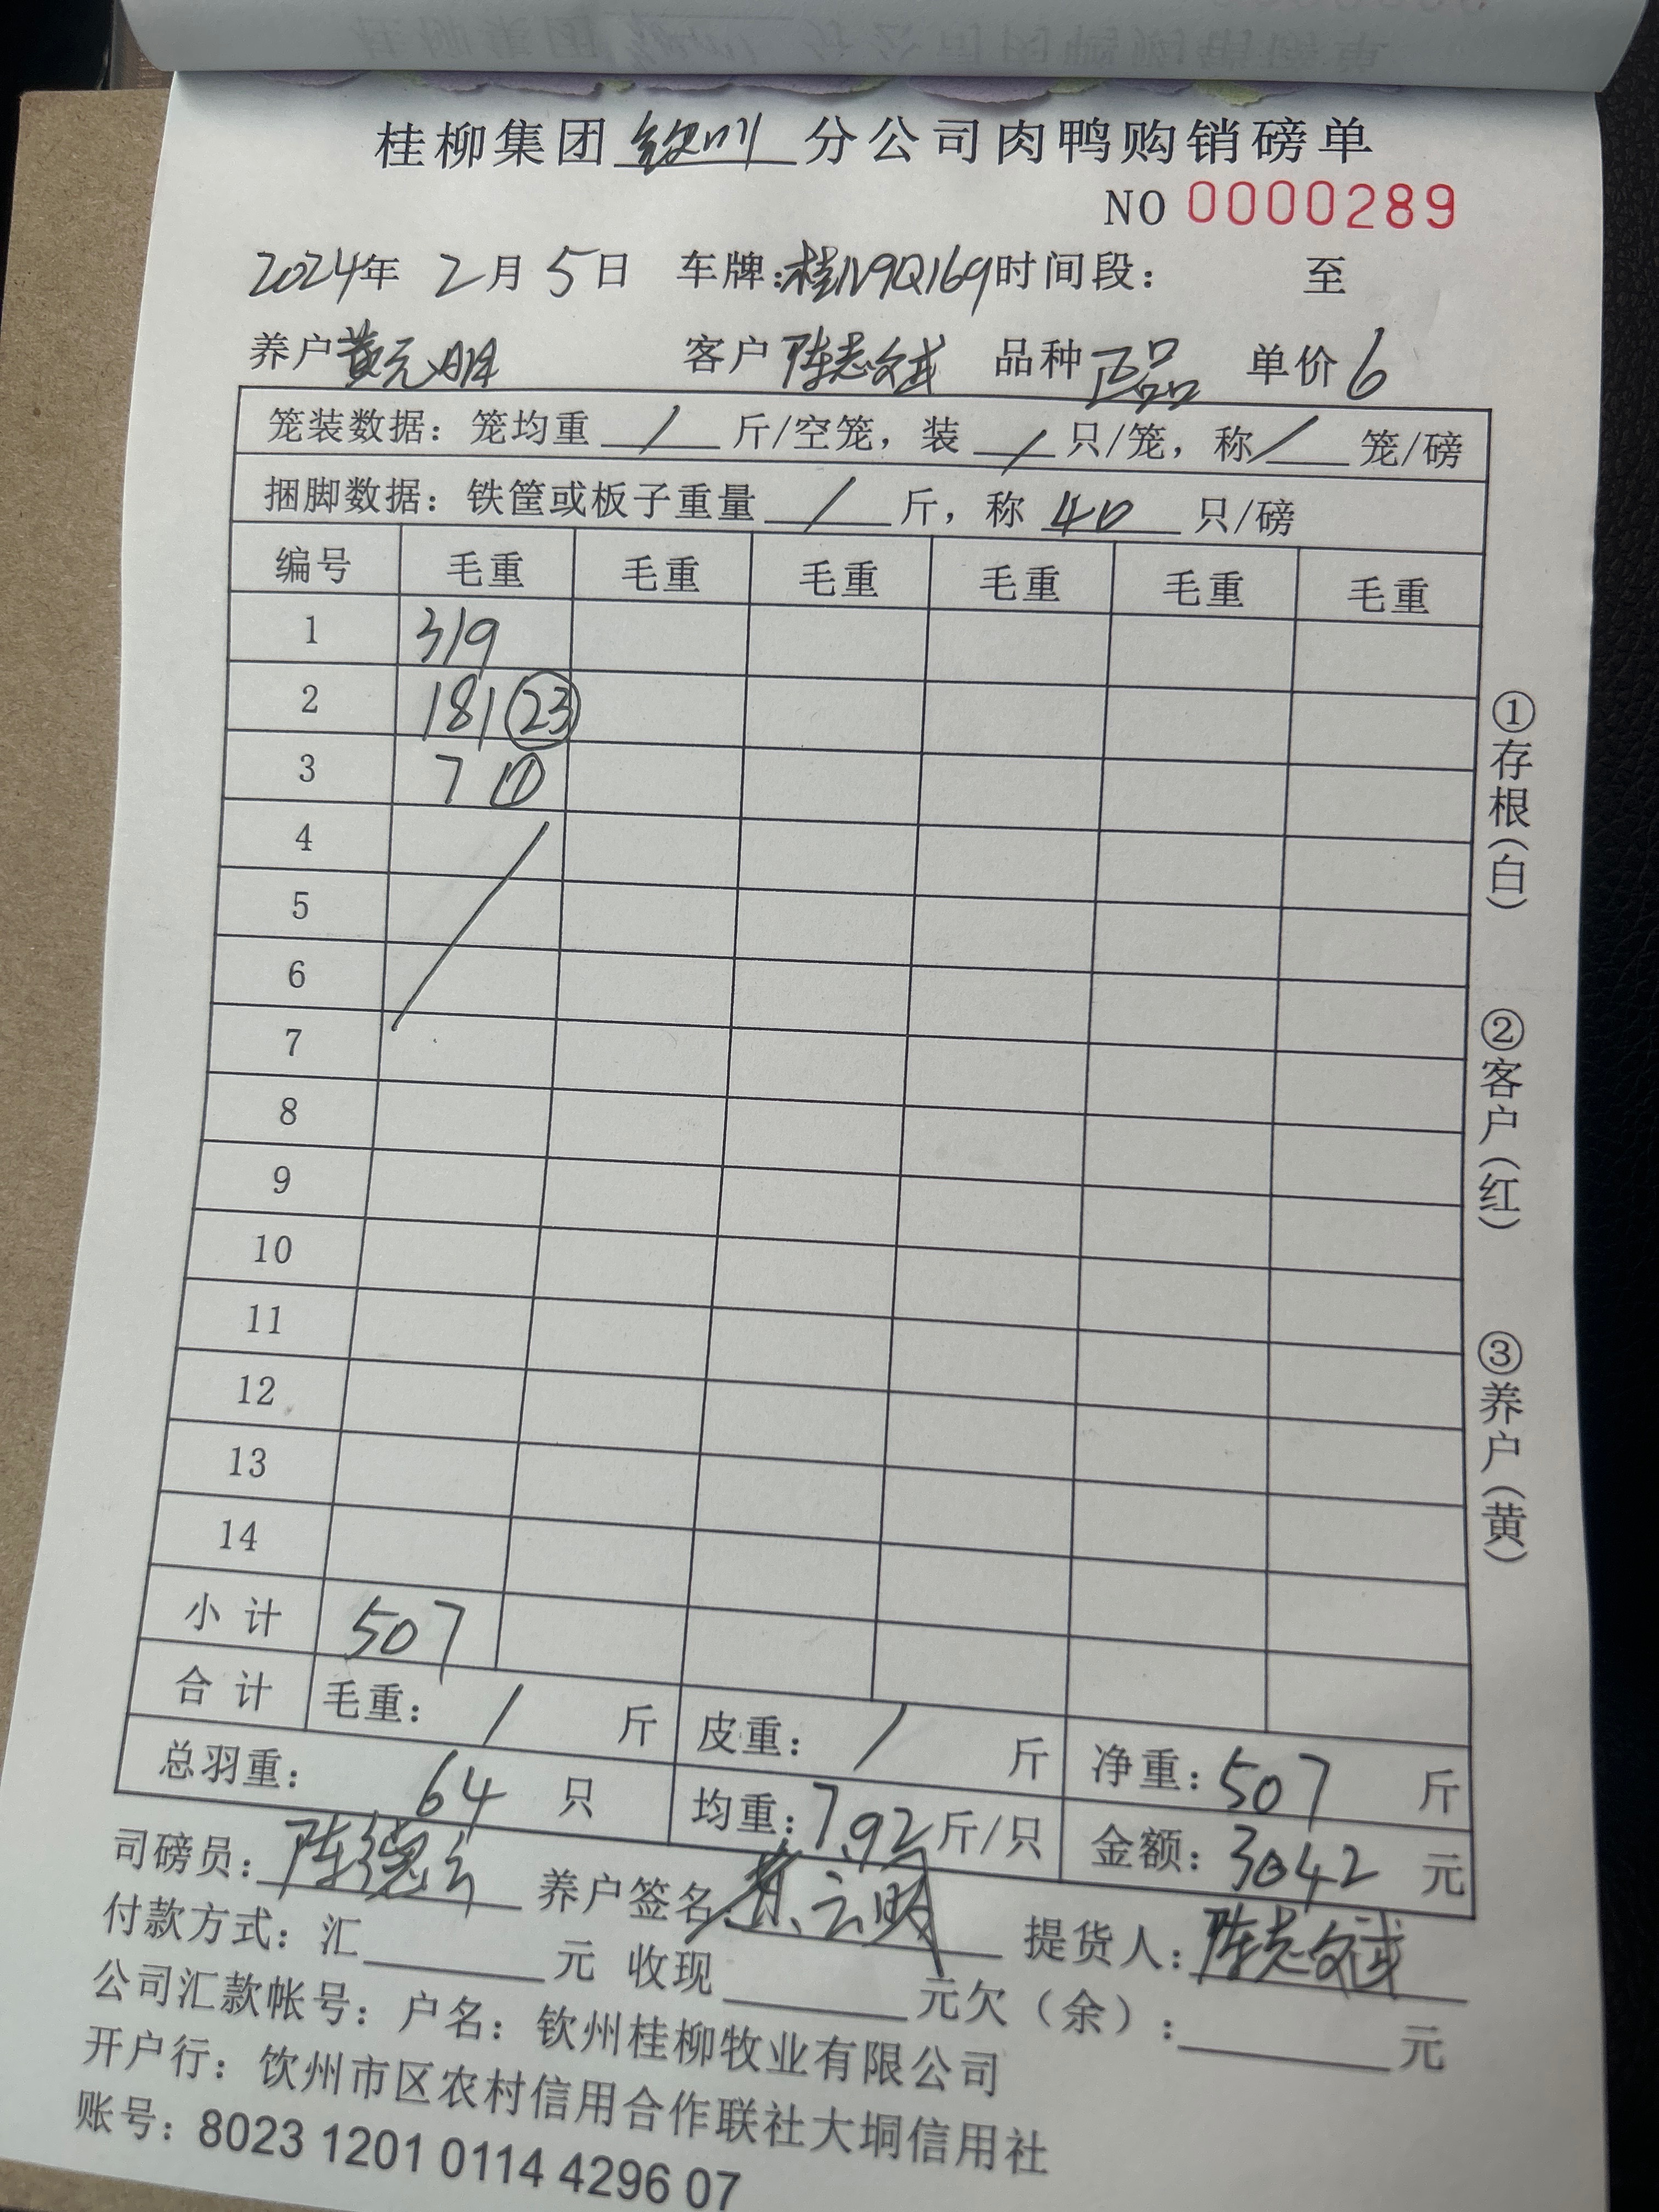 桂柳集团钦州分公司肉鸭购销磅单
NO 0000289
2024年 2月 5日 车牌:桂N9Q169时间段: 至
养户黄元明 客户陈志斌 品种正品 单价6
笼装数据:笼均重 / 斤/空笼,装 / 只/笼,称 / 笼/磅
捆脚数据:铁筐或板子重量 / 斤,称 40 只/磅
编号 毛重 毛重 毛重 毛重 毛重 毛重
1 319
2 181 (23)
3 7 ①
4
5
6
7
8
9
10
11
12
13
14
小计 507
合计 毛重: / 斤 皮重: / 斤 净重:507 斤
总羽重: 64 只 均重:7.92斤/只 金额:3042 元
司磅员:陈德云 养户签名:黄元明 提货人:陈志斌
付款方式:汇______元 收现______元欠(余):______元
公司汇款帐号:户名:钦州桂柳牧业有限公司
开户行:饮州市区农村信用合作联社大垌信用社
账号:8023 1201 0114 4296 07
①存根(白)
②客户(红)
③养户(黄)